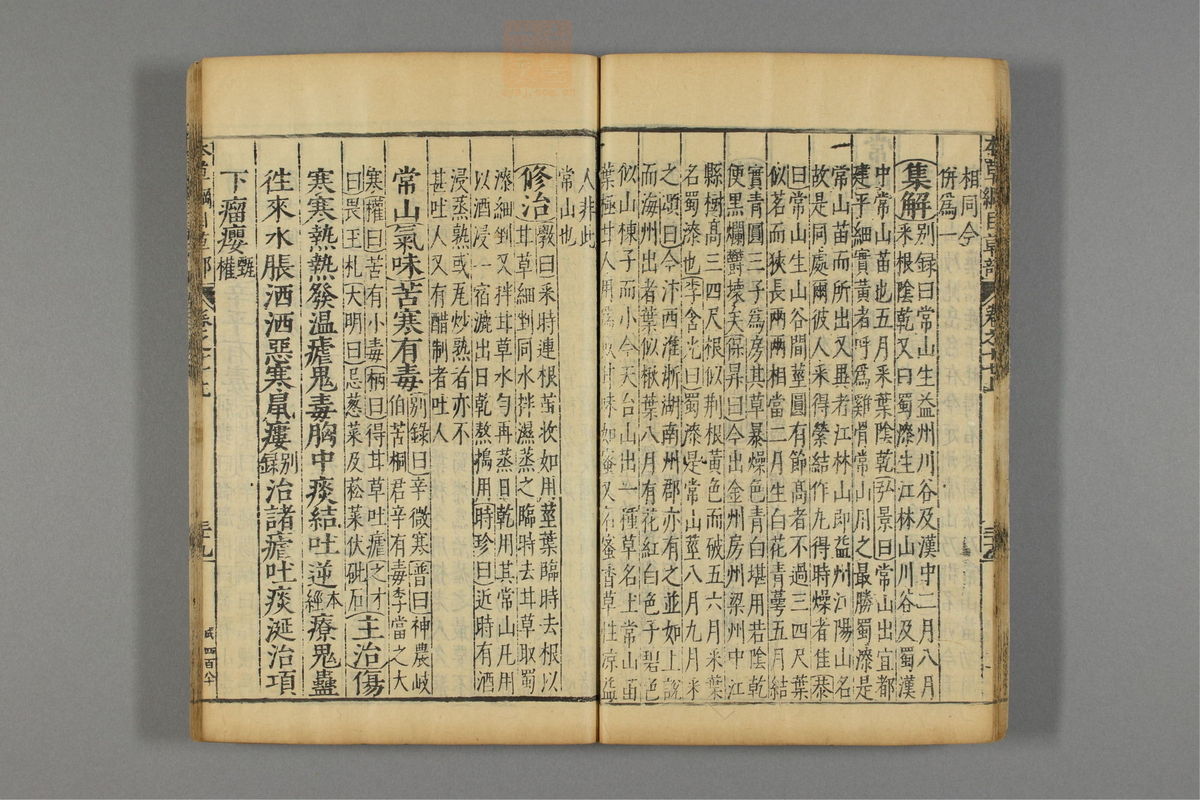 相同今
併爲一
集解别録曰常山生益州川谷及漢中二月八月
采根陰乾又曰蜀漆生江林山川谷及蜀漢
中常山苗也五月采葉陰乾弘景曰常山出宜都
建平細實黃者呼爲雞骨常山用之最勝蜀漆是
常山苗而所出又異者江林山即益州江陽山名
故是同處爾彼人采得縈結作丸得時燥者佳恭
曰常山生山谷間莖圓有節高者不過三四尺葉
似茗而狹長兩兩相當二月生白花青萼五月結
實青圓三子爲房其草暴燥色青白堪用若陰乾
便黑爛鬱壞矣保昇曰今出金州房州梁州中江
縣樹高三四尺根似荆根黃色而破五六月采葉
名蜀漆也李含光曰蜀漆是常山莖八月九月采
之頌曰今汴西淮浙湖南州郡亦有之並如上說
而海州出者葉似楸葉八月有花紅白色子碧色
似山楝子而小今天台山出一種草名土常山苗
葉極甘人用爲飲甘味如蜜又名蜜香草性凉益
人非此
常山也
修治斅曰采時連根苗收如用莖葉臨時去根以
甘草細剉同水拌濕蒸之臨時去甘草取蜀
漆細剉又拌甘草水勻再蒸日乾用其常山凡用
以酒浸一宿漉出日乾熬搗用時珍曰近時有酒
浸蒸熟或瓦炒熟者亦不
甚吐人又有醋制者吐人
常山氣味苦寒有毒别錄曰辛微寒普曰神農岐
伯苦桐君辛有毒李當之大
寒權曰苦有小毒炳曰得甘草吐瘧之才
曰畏玉札大明曰忌葱菜及菘菜伏砒石主治傷
寒寒熱熱發溫瘧鬼毒胸中痰結吐逆本經療鬼蠱
往來水脹洒洒惡寒鼠瘻别錄治諸瘧吐痰涎治項
下瘤癭甄權
本草綱目草部
卷之十七上
本草綱目草部
卷之十七上